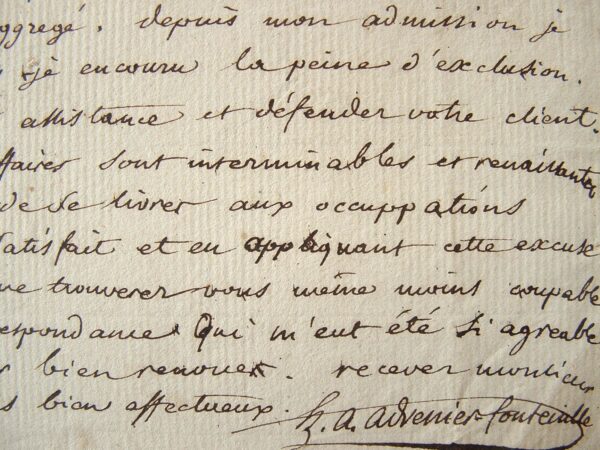 aggregé. depuis mon admission je
je encouru la peine d'exclusion.
assistance et défender votre client.
ffaires sont interminables et renaissantes
de se livrer aux occuppations
satisfait et en appliquant cette excuse
me trouverer vous même moins coupable
espondance qui m'eut été si agreable
bien renouer. recever monsieur
s bien affectueux. h. a. advenier-fonteille